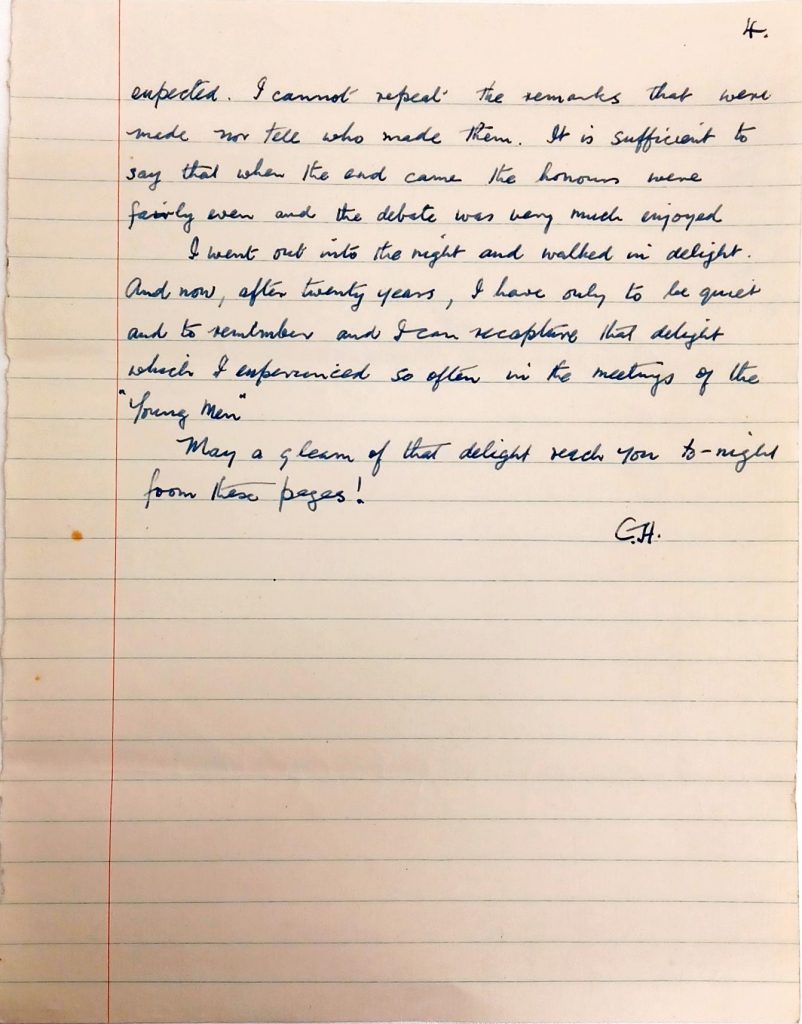 4.
expected. I cannot repeat the remarks that were
made nor tell who made them. It is sufficient to
say that when the end came the honours were
fairly even and the debate was very much enjoyed
I went out into the night and walked in delight.
And now, after twenty years, I have only to be quiet
and to remember and I can recapture that delight
which I experienced so often in the meetings of the
"Young Men"
May a gleam of that delight reach you to-night
from these pages!
C.H.